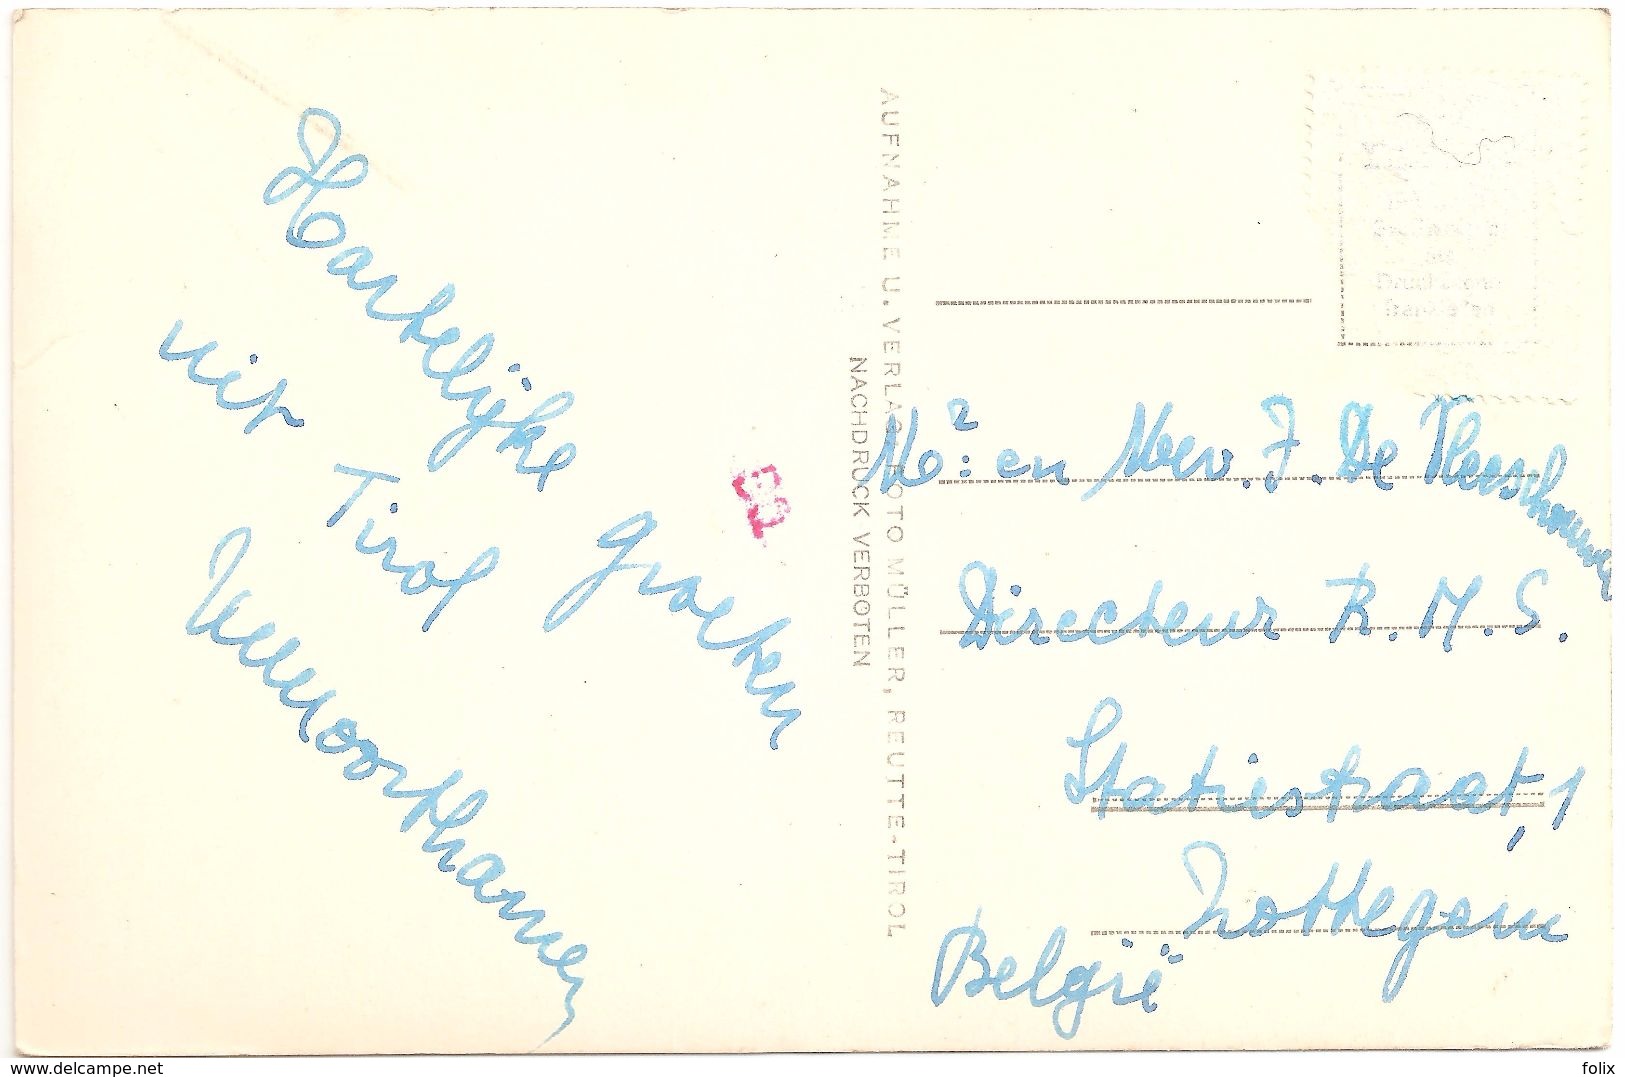 Hartelijke groeten
uit Tirol
AUFNAHME U. VERLAG FOTO MÜLLER, REUTTE-TIROL
NACHDRUCK VERBOTEN
Mr: en Mevr. J. De Vleeschouwer
Directeur R.M.S.
Statiestraat, 1
Zottegem
België
www.delcampe.net
folix